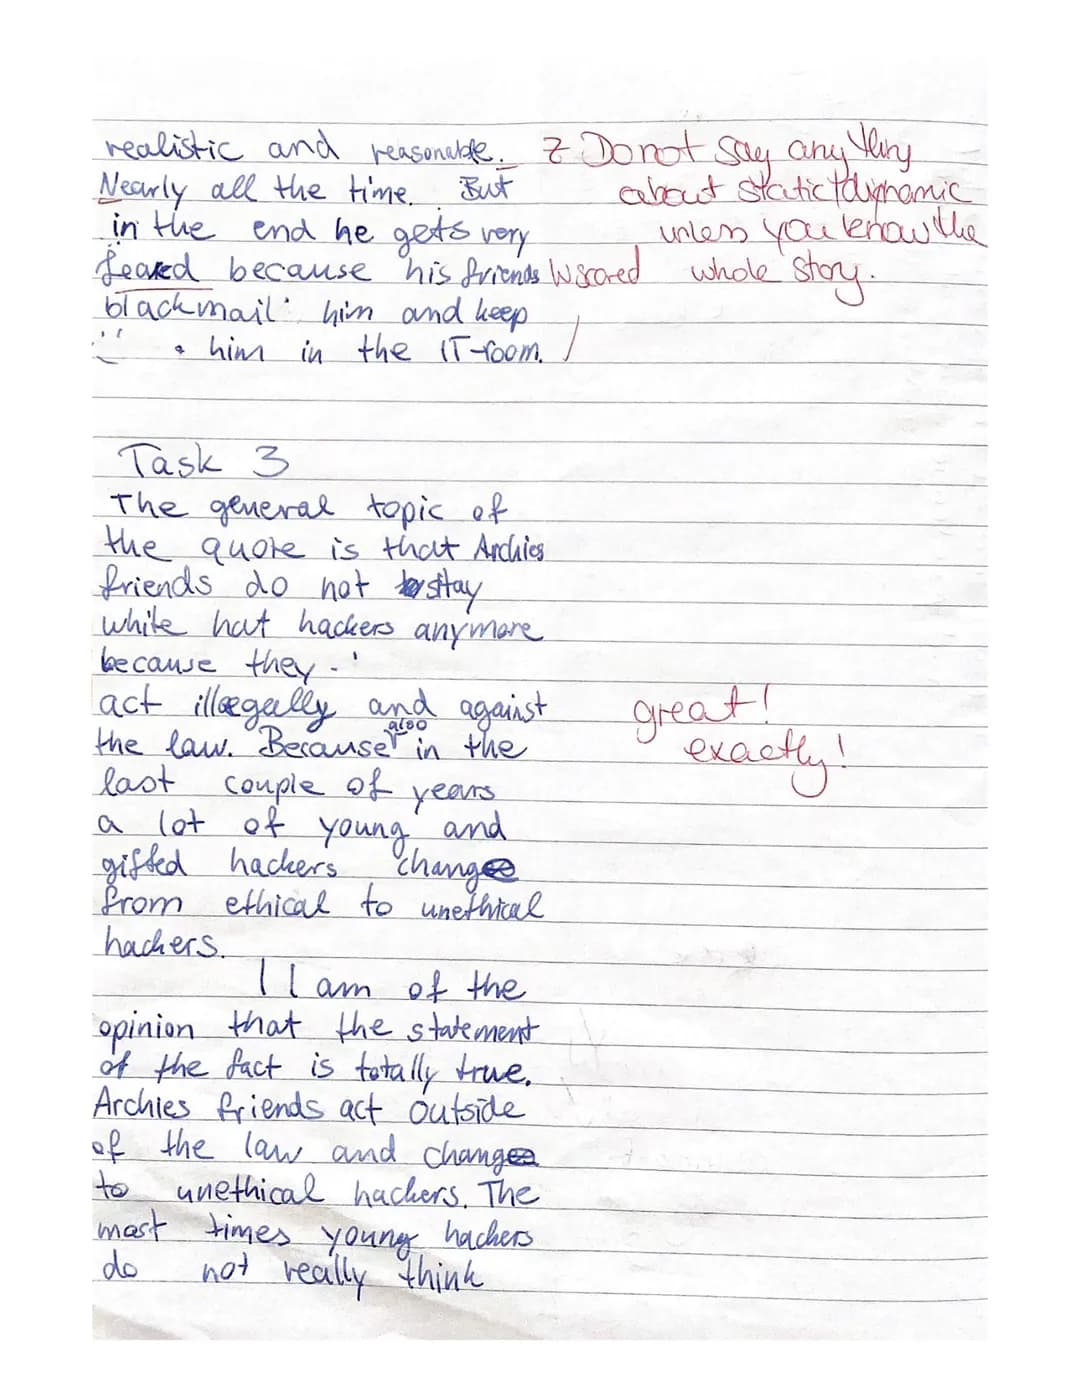 realistic and reasonable. Z Do not say anything
Nearly all the time. But about static/dignamic
in the end he gets very unless you know the
feared because his friends W scared whole story.
blackmail him and keep
him in the IT-room. /
Task 3
The general topic of
the quote is that Archies
friends do not stay
white hat hackers anymore
because they
act illegally and against
great!
also
the law. Because in the
exactly!
last couple of years
a lot of young and
gifted hackers change
from ethical to unethical
hackers.
I am of the
opinion that the statement
of the fact is totally true.
Archies friends act outside
of the law and change
to unethical hackers. The
most times young hackers
do not really think